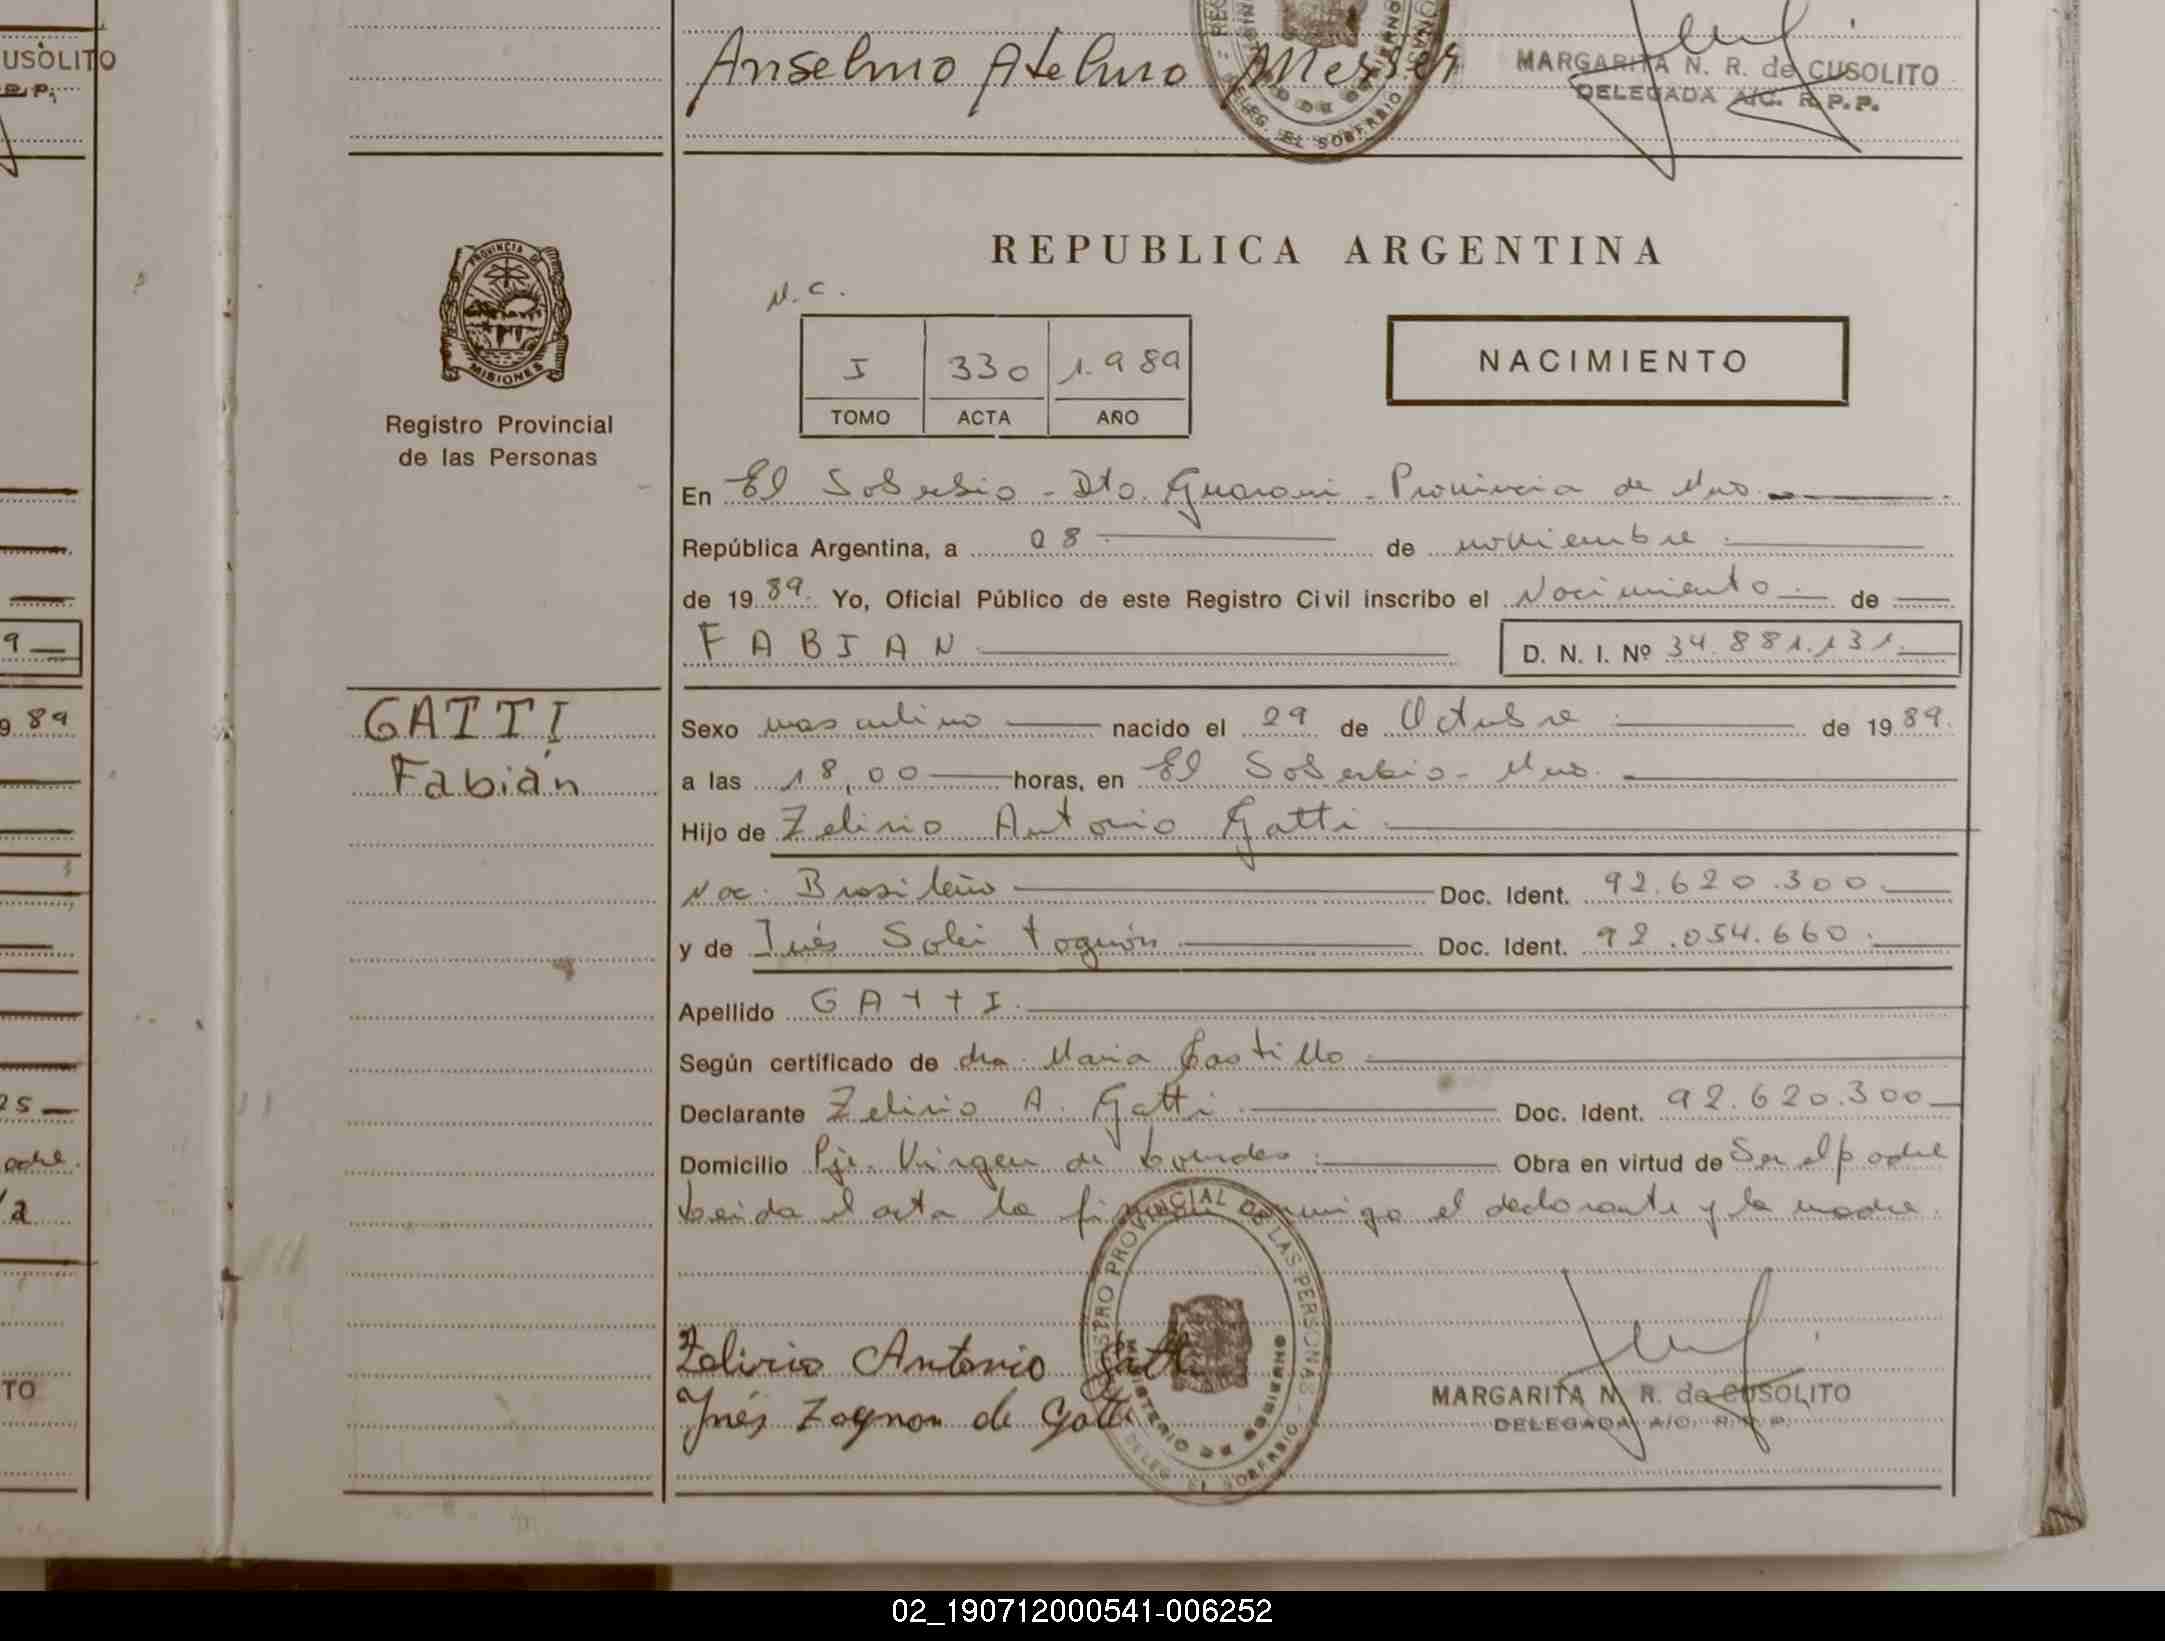 USOLITO
R. P.
Anselmo Atelmo Messer
MARGARITA N. R. de CUSOLITO
DELEGADA A/C. R. P. P.
DELEG. EL SOBERBIO
PROVINCIA DE
MISIONES
Registro Provincial
de las Personas
REPUBLICA ARGENTINA
N.C.
I 330 1.989
TOMO ACTA AÑO
NACIMIENTO
En El Soberbio - Dto. Guarani - Provincia de Mnes.
República Argentina, a 08 de noviembre
de 19 89. Yo, Oficial Público de este Registro Civil inscribo el Nacimiento de
FABIAN
D. N. I. Nº 34.881.131.
GATTI
Fabián
Sexo masculino nacido el 29 de Octubre de 19 89.
a las 18,00 horas, en El Soberbio - Mnes.
Hijo de Zelirio Antonio Gatti
Nac. Brasileño Doc. Ident. 92.620.300.
y de Inés Doc. Ident. 92.054.660.
Apellido GATTI.
Según certificado de dra. Maria Castillo
Declarante Zelirio A. Gatti Doc. Ident. 92.620.300
Domicilio Pje. Virgen de Lourdes. Obra en virtud de Ser el padre
Leida el acta la firman conmigo el declarante y la madre.
REGISTRO PROVINCIAL DE LAS PERSONAS
MINISTERIO DE GOBIERNO
DELEG. EL SOBERBIO
Zelirio Antonio Gatti
Inés Zognon de Gatti
MARGARITA N. R. de CUSOLITO
DELEGADA A/C. R. P. P.
9
9 89
25
adre.
/2
TO
02_190712000541-006252